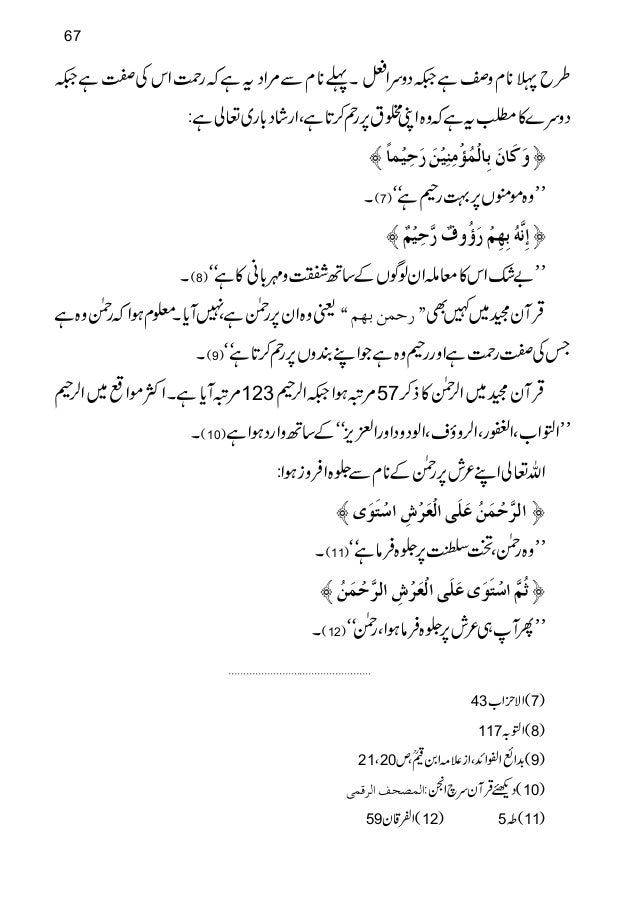 67
طرح پہلا نام وصف ہے جبکہ دوسرا فعل ۔ پہلے نام سے مراد یہ ہے کہ رحمت اس کی صفت ہے جبکہ
دوسرے کا مطلب یہ ہے کہ وہ اپنی مخلوق پر رحم کرتا ہے، ارشاد باری تعالی ہے:
﴿ وَكَانَ بِالْمُؤْمِنِيْنَ رَحِيْماً ﴾
’’وہ مومنوں پر بہت رحیم ہے‘‘(7)۔
﴿ إِنَّهُ بِهِمْ رَؤُوفٌ رَّحِيْمٌ ﴾
’’بے شک اس کا معاملہ ان لوگوں کے ساتھ شفقت و مہربانی کا ہے‘‘(8)۔
قرآن مجید میں کہیں بھی ” رحمن بهم “ یعنی وہ ان پر رحمٰن ہے، نہیں آیا۔ معلوم ہوا کہ رحمٰن وہ ہے
جس کی صفت رحمت ہے اور رحیم وہ ہے جو اپنے بندوں پر رحم کرتا ہے‘‘(9)۔
قرآن مجید میں الرحمٰن کا ذکر 57 مرتبہ ہوا جبکہ الرحیم 123 مرتبہ آیا ہے۔ اکثر مواقع میں الرحیم
’’التواب، الغفور، الرووف، الودود اور العزیز‘‘ کے ساتھ وارد ہوا ہے(10)۔
اللہ تعالی اپنے عرش پر رحمٰن کے نام سے جلوہ افروز ہوا:
﴿ الرَّحْمَنُ عَلَى الْعَرْشِ اسْتَوَى ﴾
’’وہ رحمٰن، تخت سلطنت پر جلوہ فرما ہے‘‘(11)۔
﴿ ثُمَّ اسْتَوَى عَلَى الْعَرْشِ الرَّحْمَنُ ﴾
’’پھر آپ ہی عرش پر جلوہ فرما ہوا، رحمٰن‘‘(12)۔
(7) الاحزاب 43
(8) التوبہ 117
(9) بدائع الفوائد، از علامہ ابن قیمؒ، ص 20،21
(10) دیکھئے قرآن سرچ انجن: المصحف الرقمى
(11) طہ 5 (12) الفرقان 59